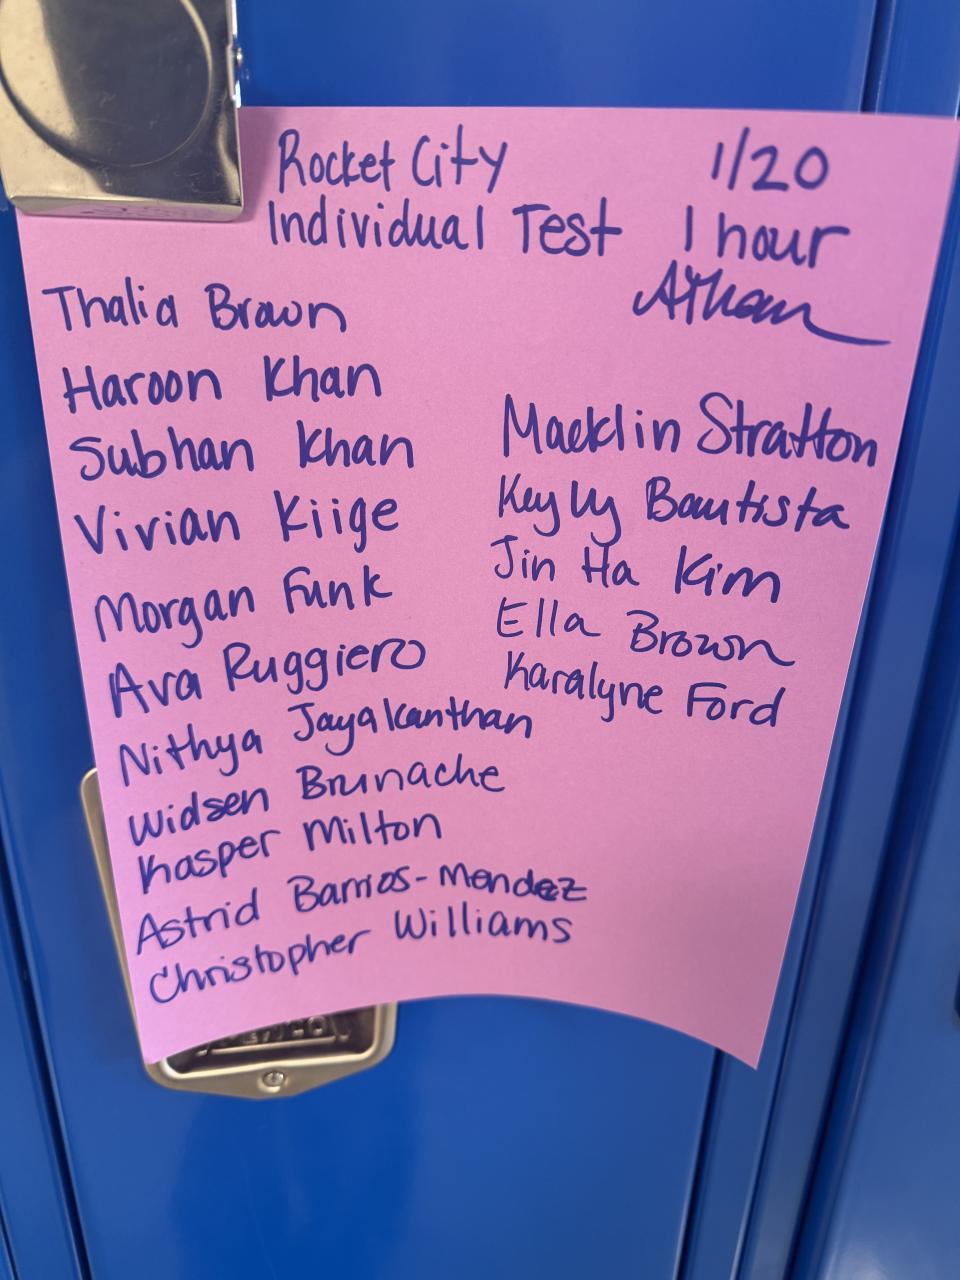 Rocket City 1/20
Individual Test 1 hour
Thalia Brown
Haroon Khan
Subhan Khan
Vivian Kiige
Morgan Funk
Ava Ruggiero
Nithya Jayakanthan
Widsen Brunache
Kasper Milton
Astrid Barrios-Mendez
Christopher Williams
Macklin Stratton
Keyly Bautista
Jin Ha Kim
Ella Brown
Karalyne Ford